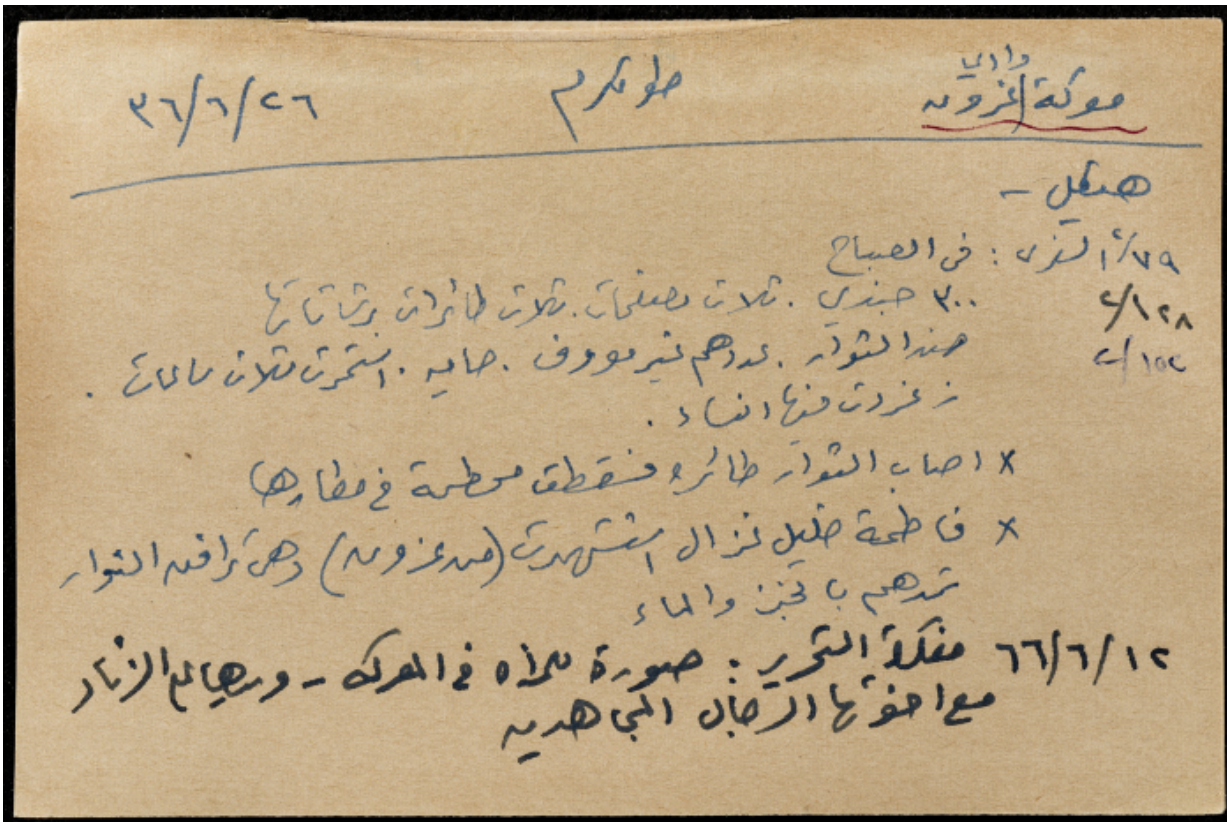 وادي
معركة عزون طولكرم ٣٦/٦/٢٦
هيكل -
١/٧٩ : في الصباح
٢/١٢٨ ٣٠٠ جندي . ثلاث مصفحات . ثلاث طائرات برشاشاتها
٢/١٥٢ ضد الثوار . عددهم غير معروف . حاميه . استمرت ثلاث ساعات .
زغردت فيها النساء .
x اصاب الثوار طائرة فسقطت محطمة في مطارها
x فاطمة خليل غزال استشهدت (من عزون) وهي ترافق الثوار
تمدهم بالخبز والماء
٦٦/٦/١٢ مفكرة التحرير : صورة للمراه في المعركه - ويدها على الزناد
مع اخوتها الرجال المجاهدين